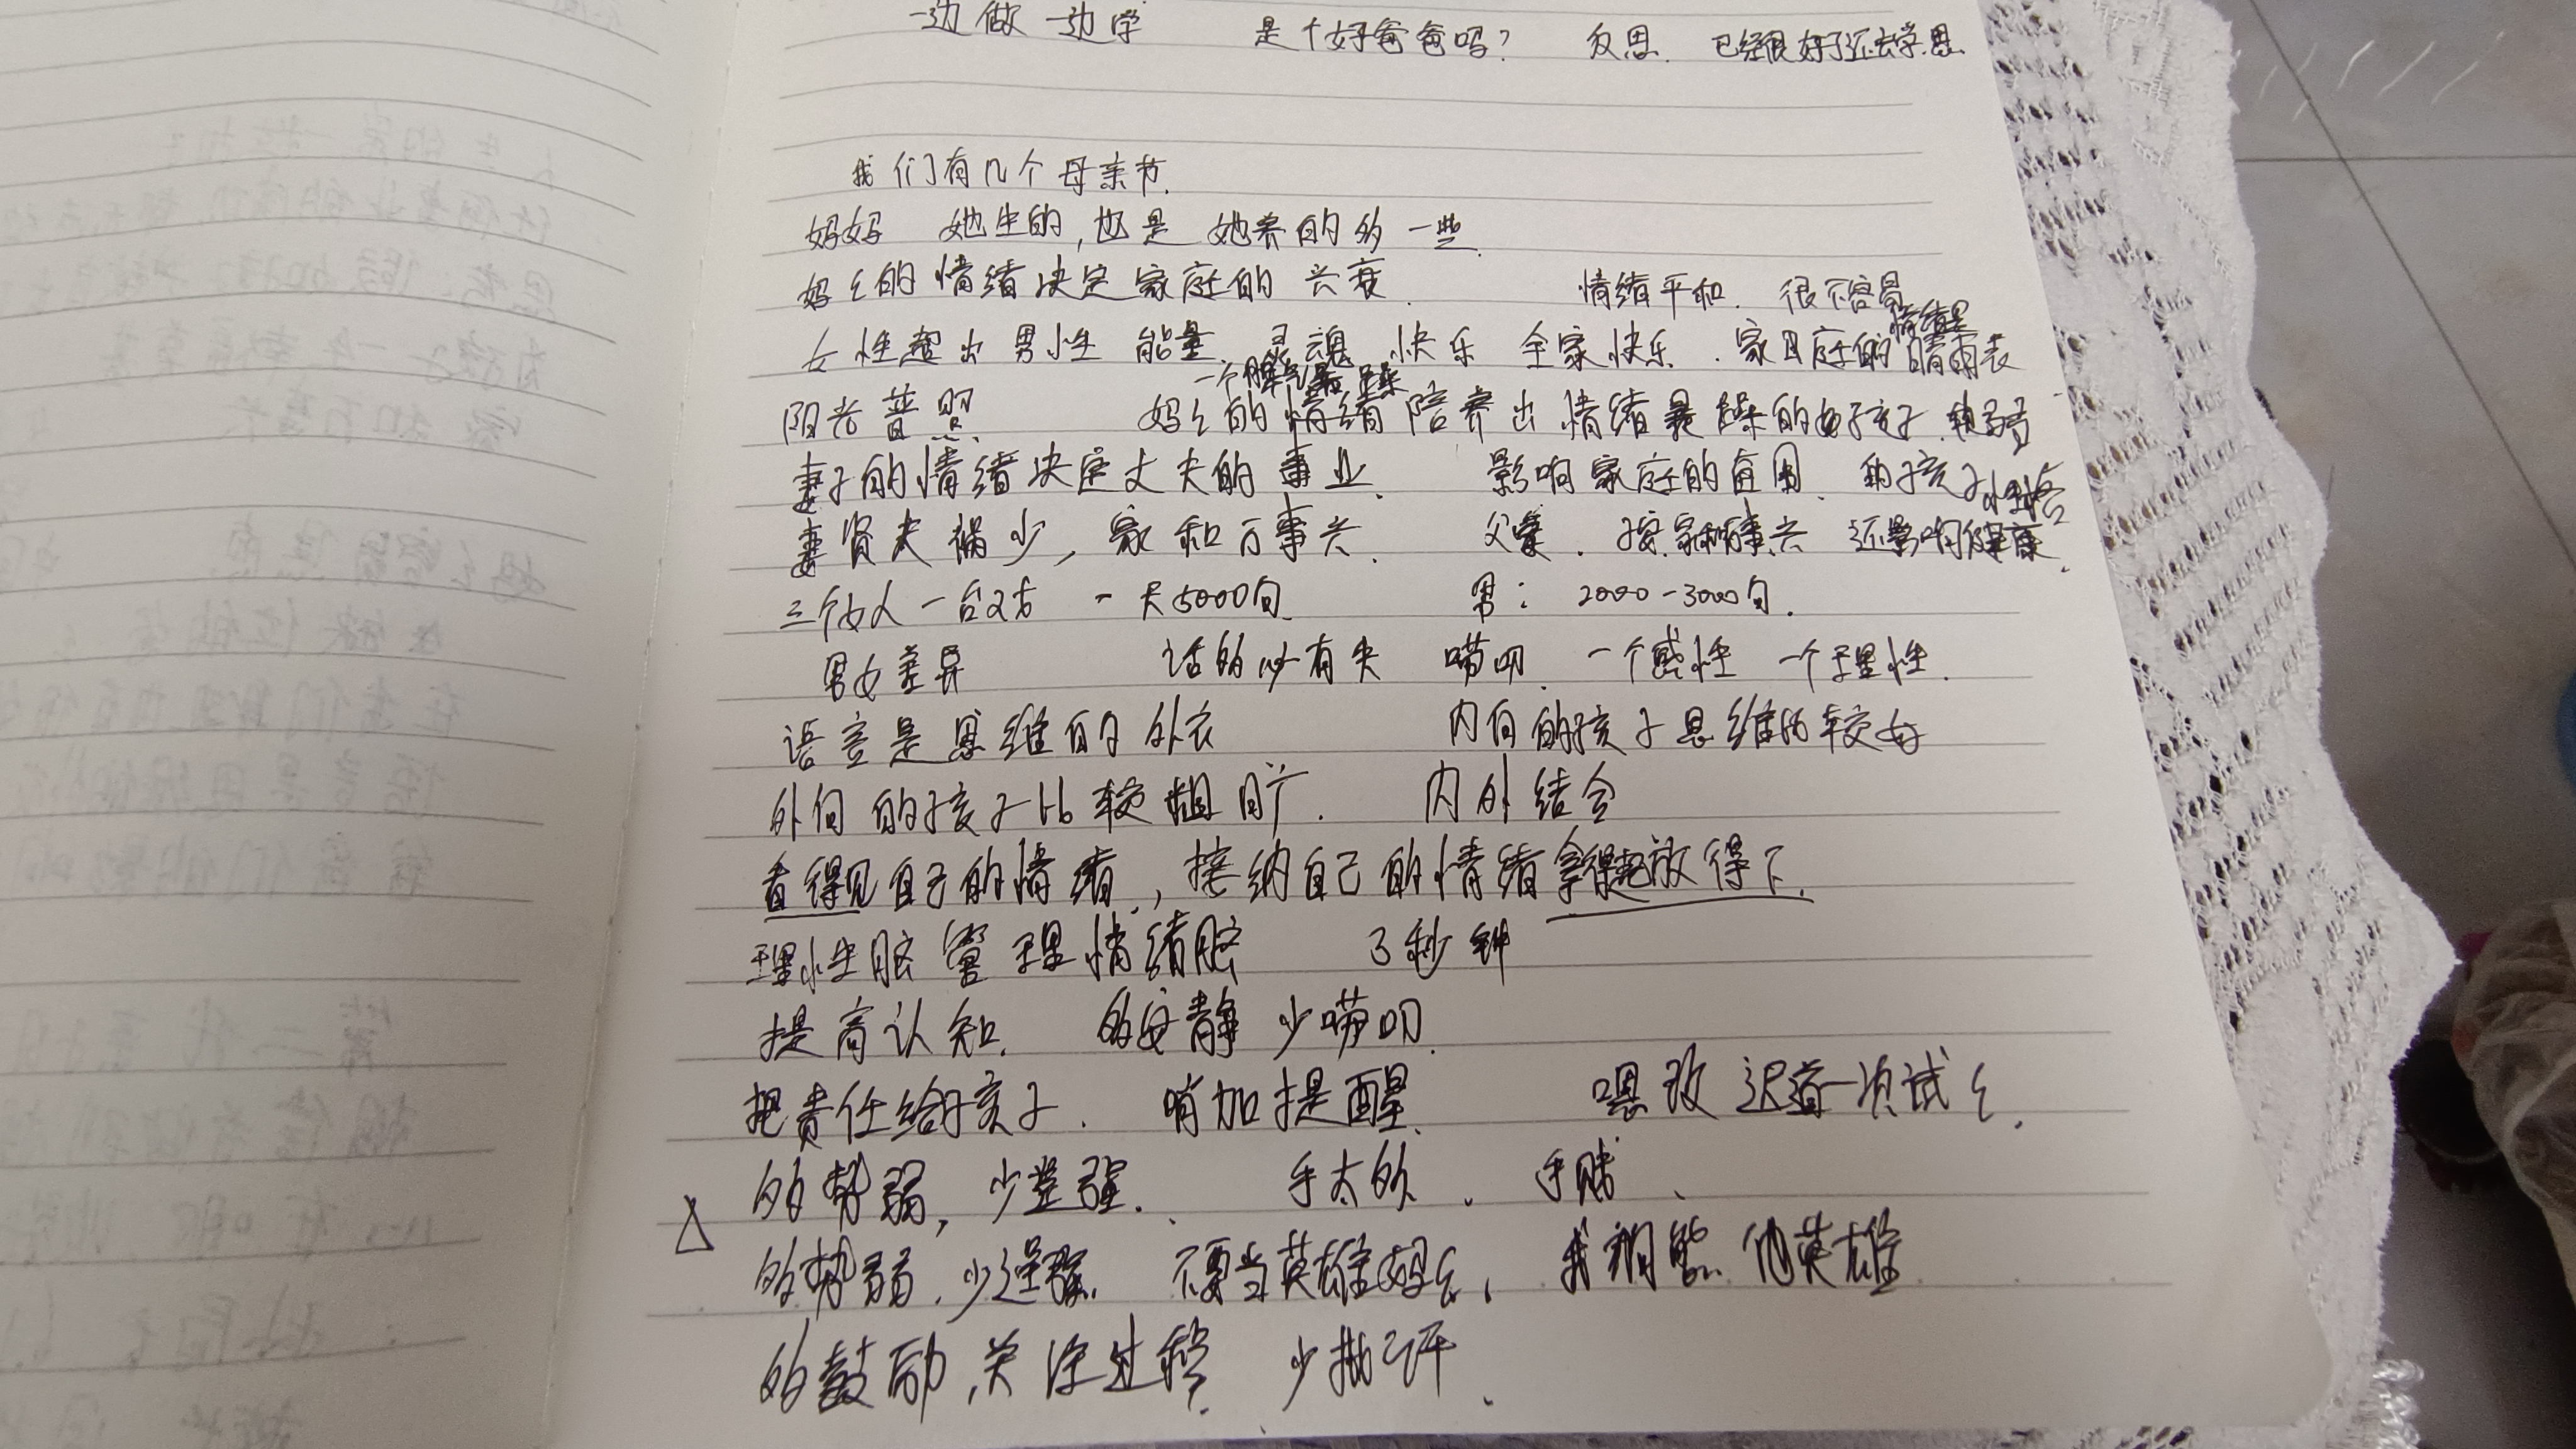 一边做一边学 是个好爸爸吗？ 反思. 已经很好了还去学.思
我们有几个母亲节.
妈妈 她生的,也是 她养的多一些.
妈々的情绪决定家庭的兴衰. 情绪平和. 很不容易
女性超出男性 能量. 灵魂 快乐 全家快乐. 家庭的情绪是晴雨表
一个脾气暴躁
阳光普照 妈々的情绪陪养出情绪暴躁的孩子.软弱
妻子的情绪决定丈夫的事业. 影响家庭的 孩子性格
妻贤夫祸少, 家和万事兴. 家和万事兴 还影响健康.
三个女人一台戏 一天5000句. 男: 2000-3000句.
男女差异 话多必有失 唠叨. 一个感性 一个理性.
语言是思维的外衣 内向的孩子思维的较好
外向的孩子比较粗旷. 内外结合
看得见自己的情绪., 接纳自己的情绪拿得起放得下.
理性脑管理情绪脑 3秒钟
提高认知. 多安静 少唠叨.
把责任给孩子. 哨加提醒. 嗯 改 迟道一次试々.
多势弱, 少逞强. 手太多. 手贱、
△ 多势弱.少逞强. 不要当英雄妈々, 他英雄
多鼓励,关注过程. 少批评.